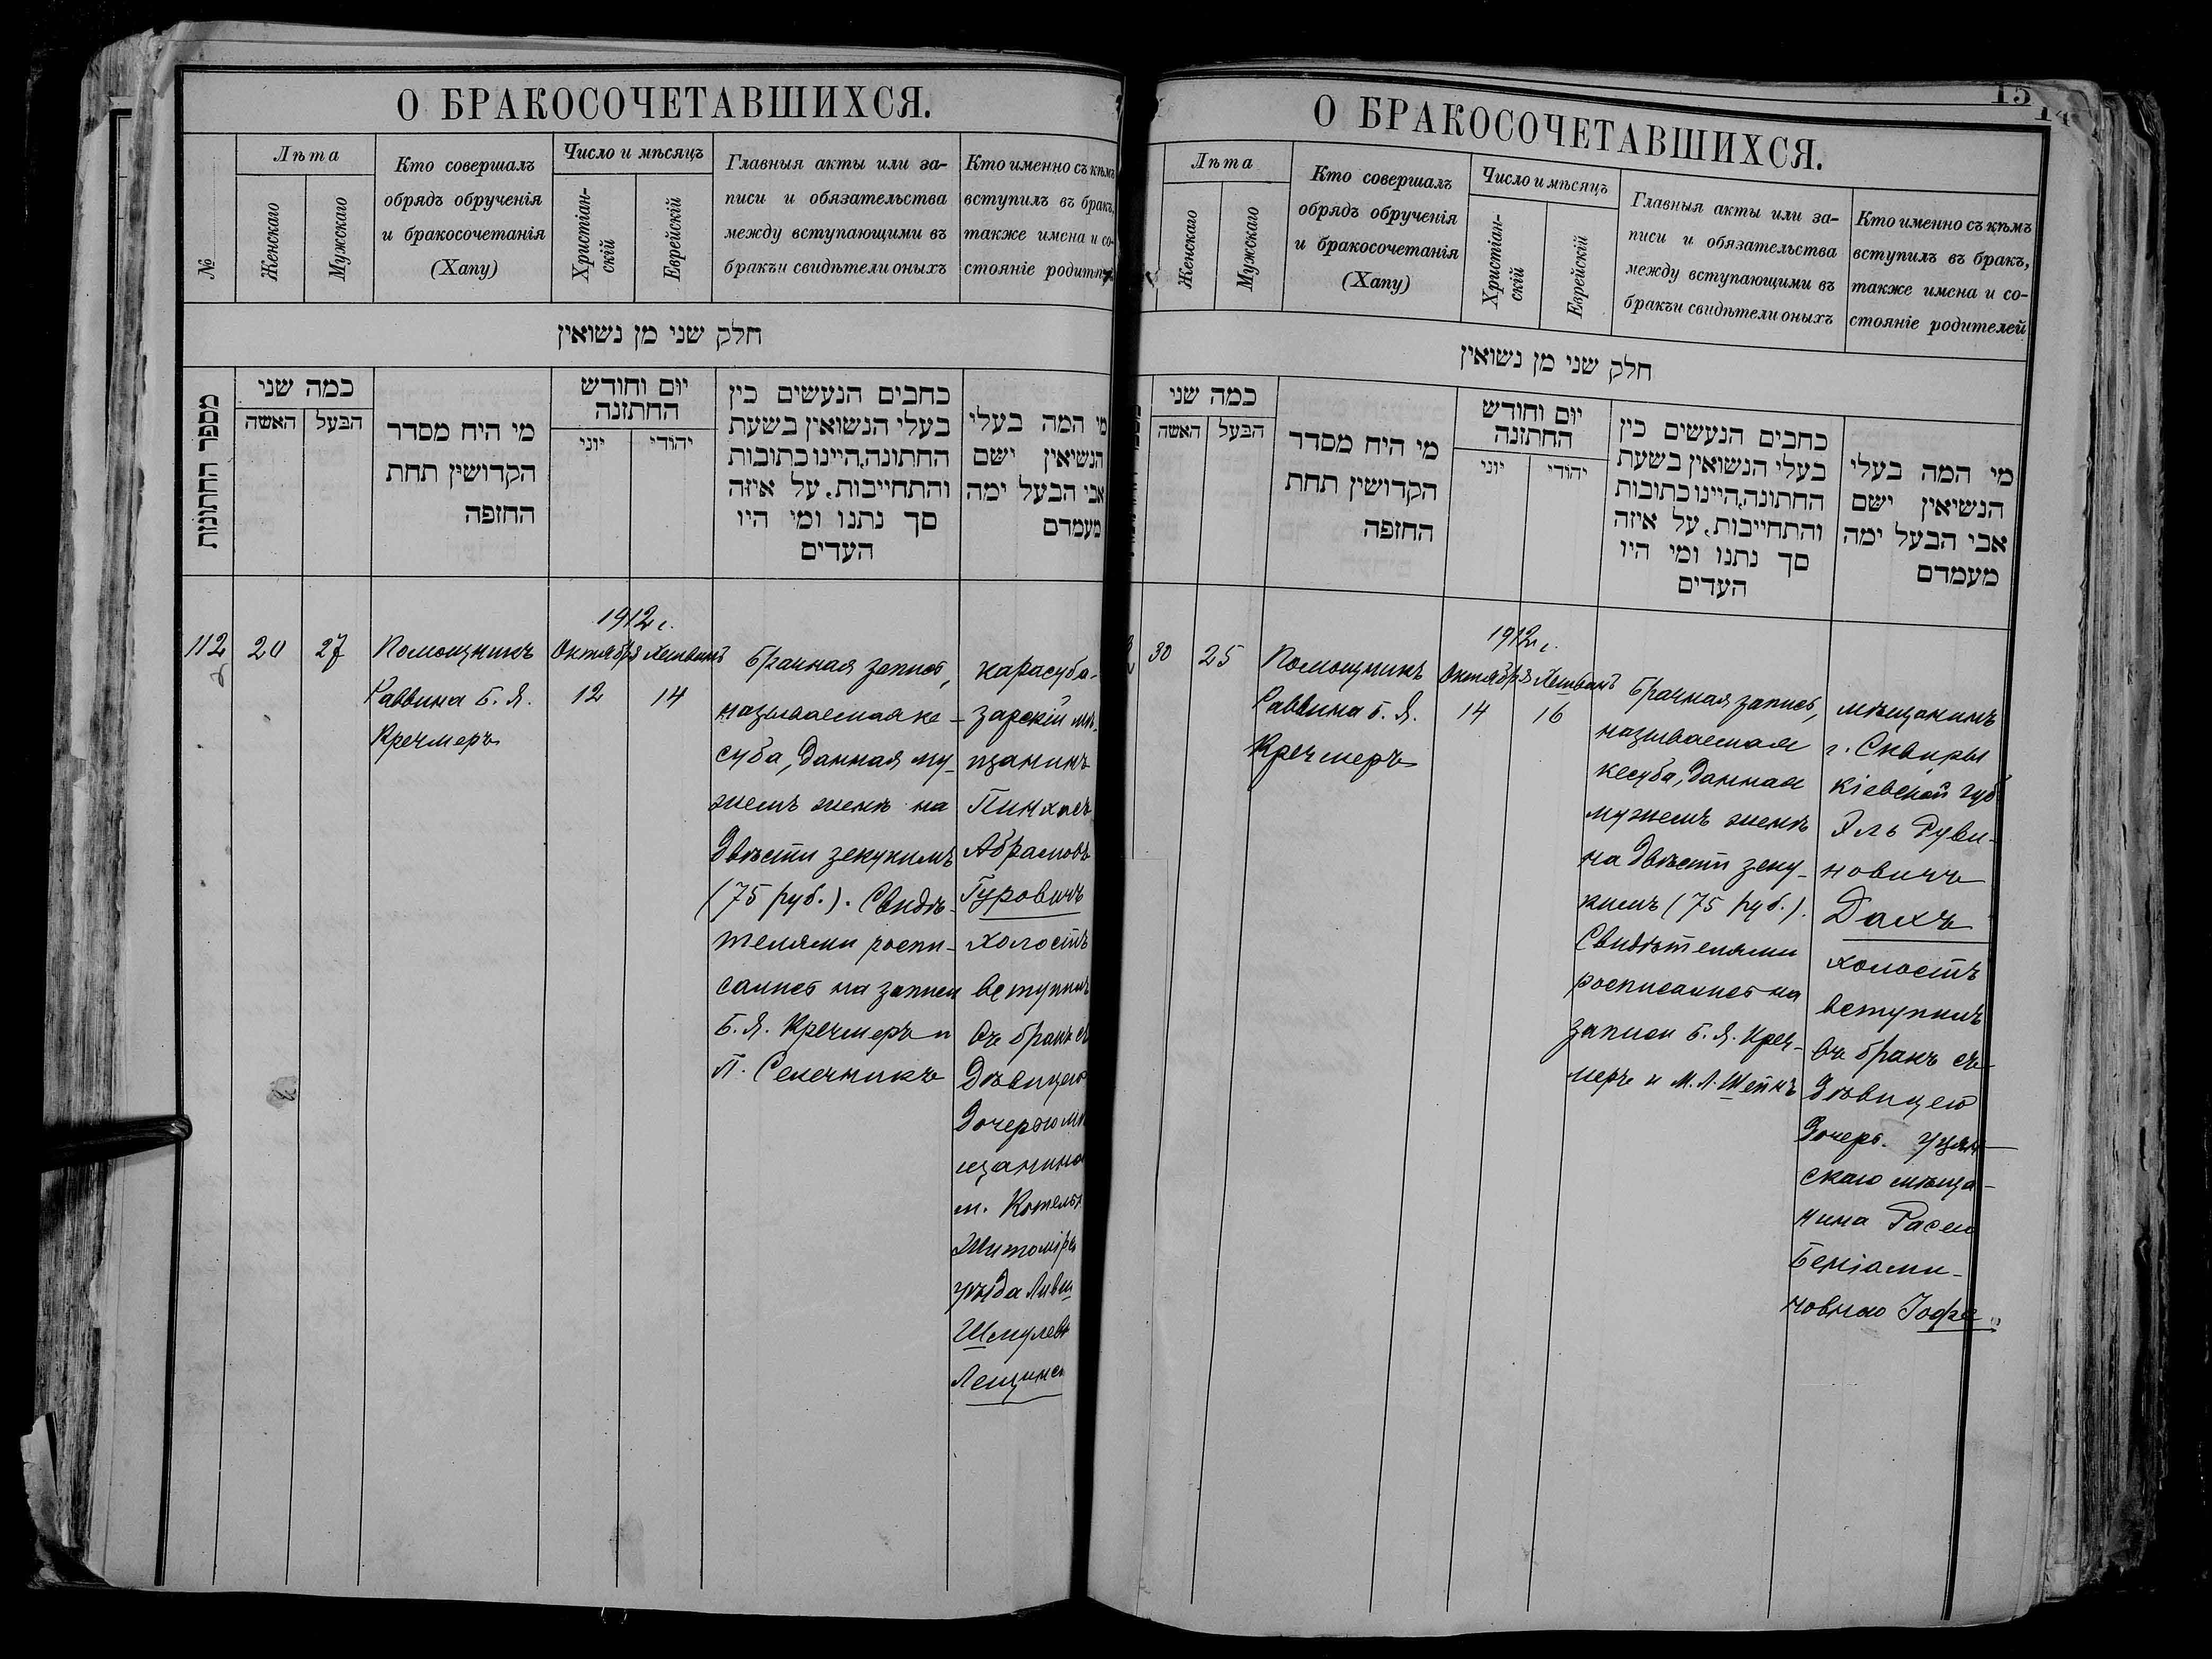 О БРАКОСОЧЕТАВШИХСЯ.
№
Лѣта
Женскаго
Мужскаго
Кто совершалъ
обрядъ обрученія
и бракосочетанія
(Хапу)
Число и мѣсяцъ
Христіан-
скій
Еврейскій
Главныя акты или за-
писи и обязательства
между вступающими въ
бракъи свидѣтели оныхъ
Кто именно съ кѣмъ
вступилъ въ бракъ,
также имена и со-
стояніе родит
חלק שני מן נשואין
מספר החתונות
כמה שני
האשה
הבעל
מי היח מסדר
הקדושין תחת
החופה
יום וחודש
החתונה
יוני
יהודי
כחבים הנעשים כין
בעלי הנשואין בשעת
החתונה,היינו כתובות
והתחייבות, על איזה
סך נתנו ומי היו
העדים
מי המה בעלי
הנשיאין ישם
אבי הבעל ימה
מעמדם
112
20
27
Помощникъ
Раввина Б. Я.
Кречмеръ
1912 г.
Октября Хешванъ
12 14
Брачная запись,
называемая ке-
суба, данная му-
жемъ женѣ на
двѣсти зекукимъ
(75 руб.). Свидѣ-
телями роспи-
сались на записи
Б. Я. Кречмеръ и
П. Сенечникъ
Карасуба-
зарскій мѣ-
щанинъ
Пинхасъ
Абрамовъ
Гуровичъ
холостъ
вступилъ
въ бракъ съ
дѣвицею
дочерью мѣ
щанина
м. Котельн
Житомірск
уѣзда
Шмулев
Лещинск
О БРАКОСОЧЕТАВШИХСЯ.
15
14
Лѣта
Женскаго
Мужскаго
Кто совершалъ
обрядъ обрученія
и бракосочетанія
(Хапу)
Число и мѣсяцъ
Христіан-
скій
Еврейскій
Главныя акты или за-
писи и обязательства
между вступающими въ
бракъи свидѣтели оныхъ
Кто именно съ кѣмъ
вступилъ въ бракъ,
также имена и со-
стояніе родителей
חלק שני מן נשואין
כמה שני
האשה
הבעל
מי היח מסדר
הקדושין תחת
החופה
יום וחודש
החתונה
יוני
יהודי
כחבים הנעשים כין
בעלי הנשואין בשעת
החתונה,היינו כתובות
והתחייבות, על איזה
סך נתנו ומי היו
העדים
מי המה בעלי
הנשיאין ישם
אבי הבעל ימה
מעמדם
30
25
Помощникъ
Раввина Б. Я.
Кречмеръ
1912 г.
Октября Хешванъ
14 16
Брачная запись,
называемая
кесуба, данная
мужемъ женѣ
на двѣсти зеку-
кимъ (75 руб.).
Свидѣтелями
росписались на
записи Б. Я. Креч-
меръ и М. Л. Шейнъ
мѣщанинъ
г. Сквиры
Кіевской губ
Эль Руви-
новичъ
Дахъ
холостъ
вступилъ
въ бракъ съ
дѣвицею
дочерь.
скаго мѣща-
нина Расею
Беніами-
новною Іофе.